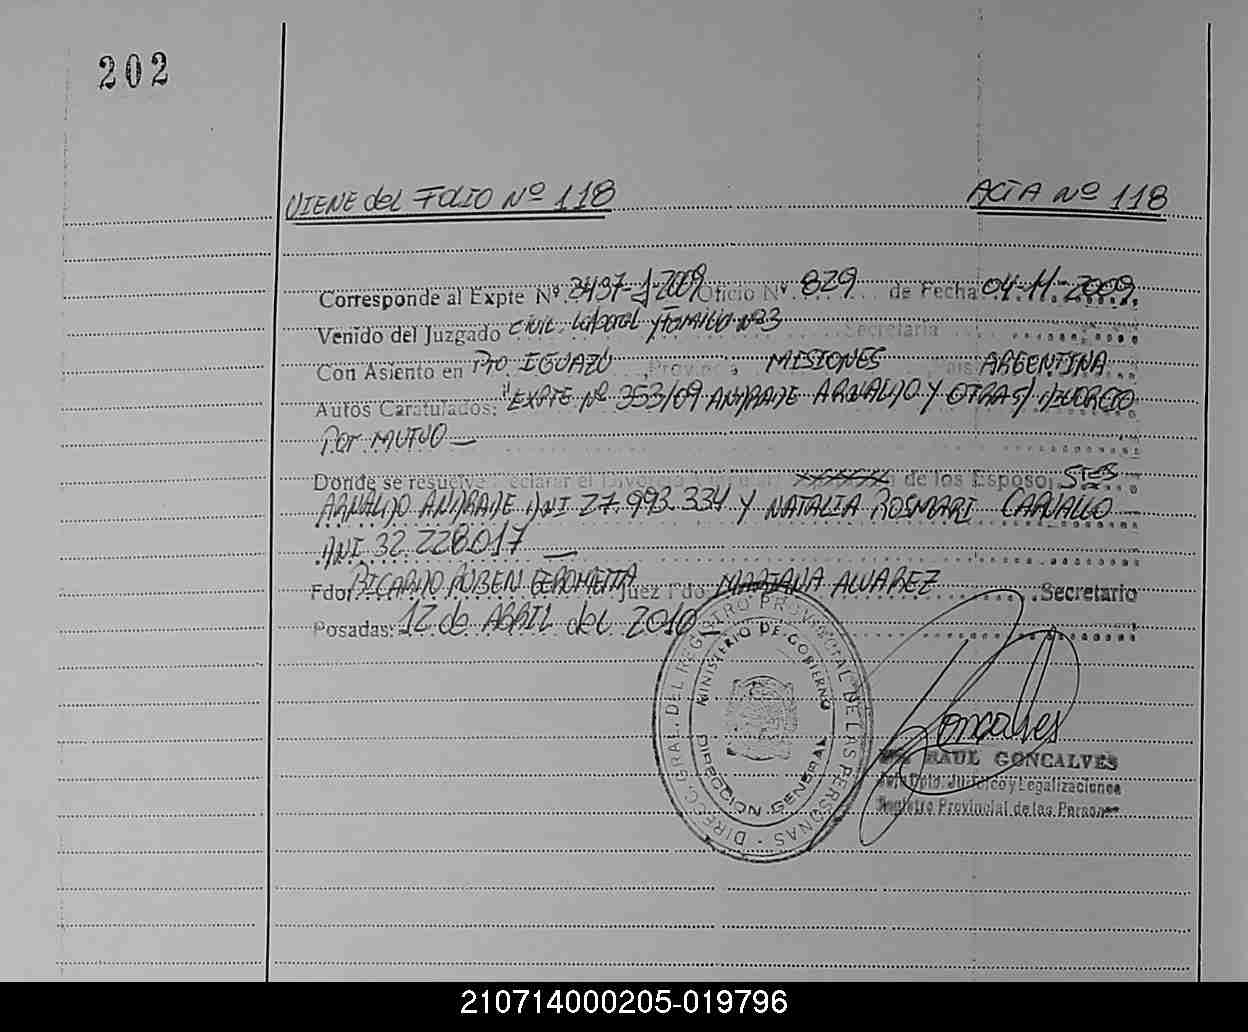 202
VIENE del FOLIO Nº 118 ACTA Nº 118
Corresponde al Expte Nº 2437-J-2009 Oficio Nº 829 de Fecha 04-11-2009
Venido del Juzgado Civil, Laboral y Familia Nº 3 Secretaria
Con Asiento en Pto. IGUAZU, Provincia MISIONES, ARGENTINA
Autos Caratulados: "EXPTE Nº 353/09 ANDRADE ARNALDO Y OTRAS/ DIVORCIO
Por MUTUO —
Donde se resuelve declarar el Divorcio de los Esposos
ARNALDO ANDRADE DNI 27.993.334 Y NATALIA ROSMARI CARVALLO
DNI 32.228.017 —
Fdo: RICARDO RUBEN GEROMETTA Juez Fdo: MARIANA ALVAREZ Secretario
Posadas: 12 de ABRIL del 2010 —
DIREC. GRAL. DEL REGISTRO PROVINCIAL DE LAS PERSONAS
MINISTERIO DE GOBIERNO
DIRECCION GENERAL
Goncalves
RAUL GONCALVES
Jefe Dpto. Jurídico y Legalizaciones
Registro Provincial de las Personas
210714000205-019796